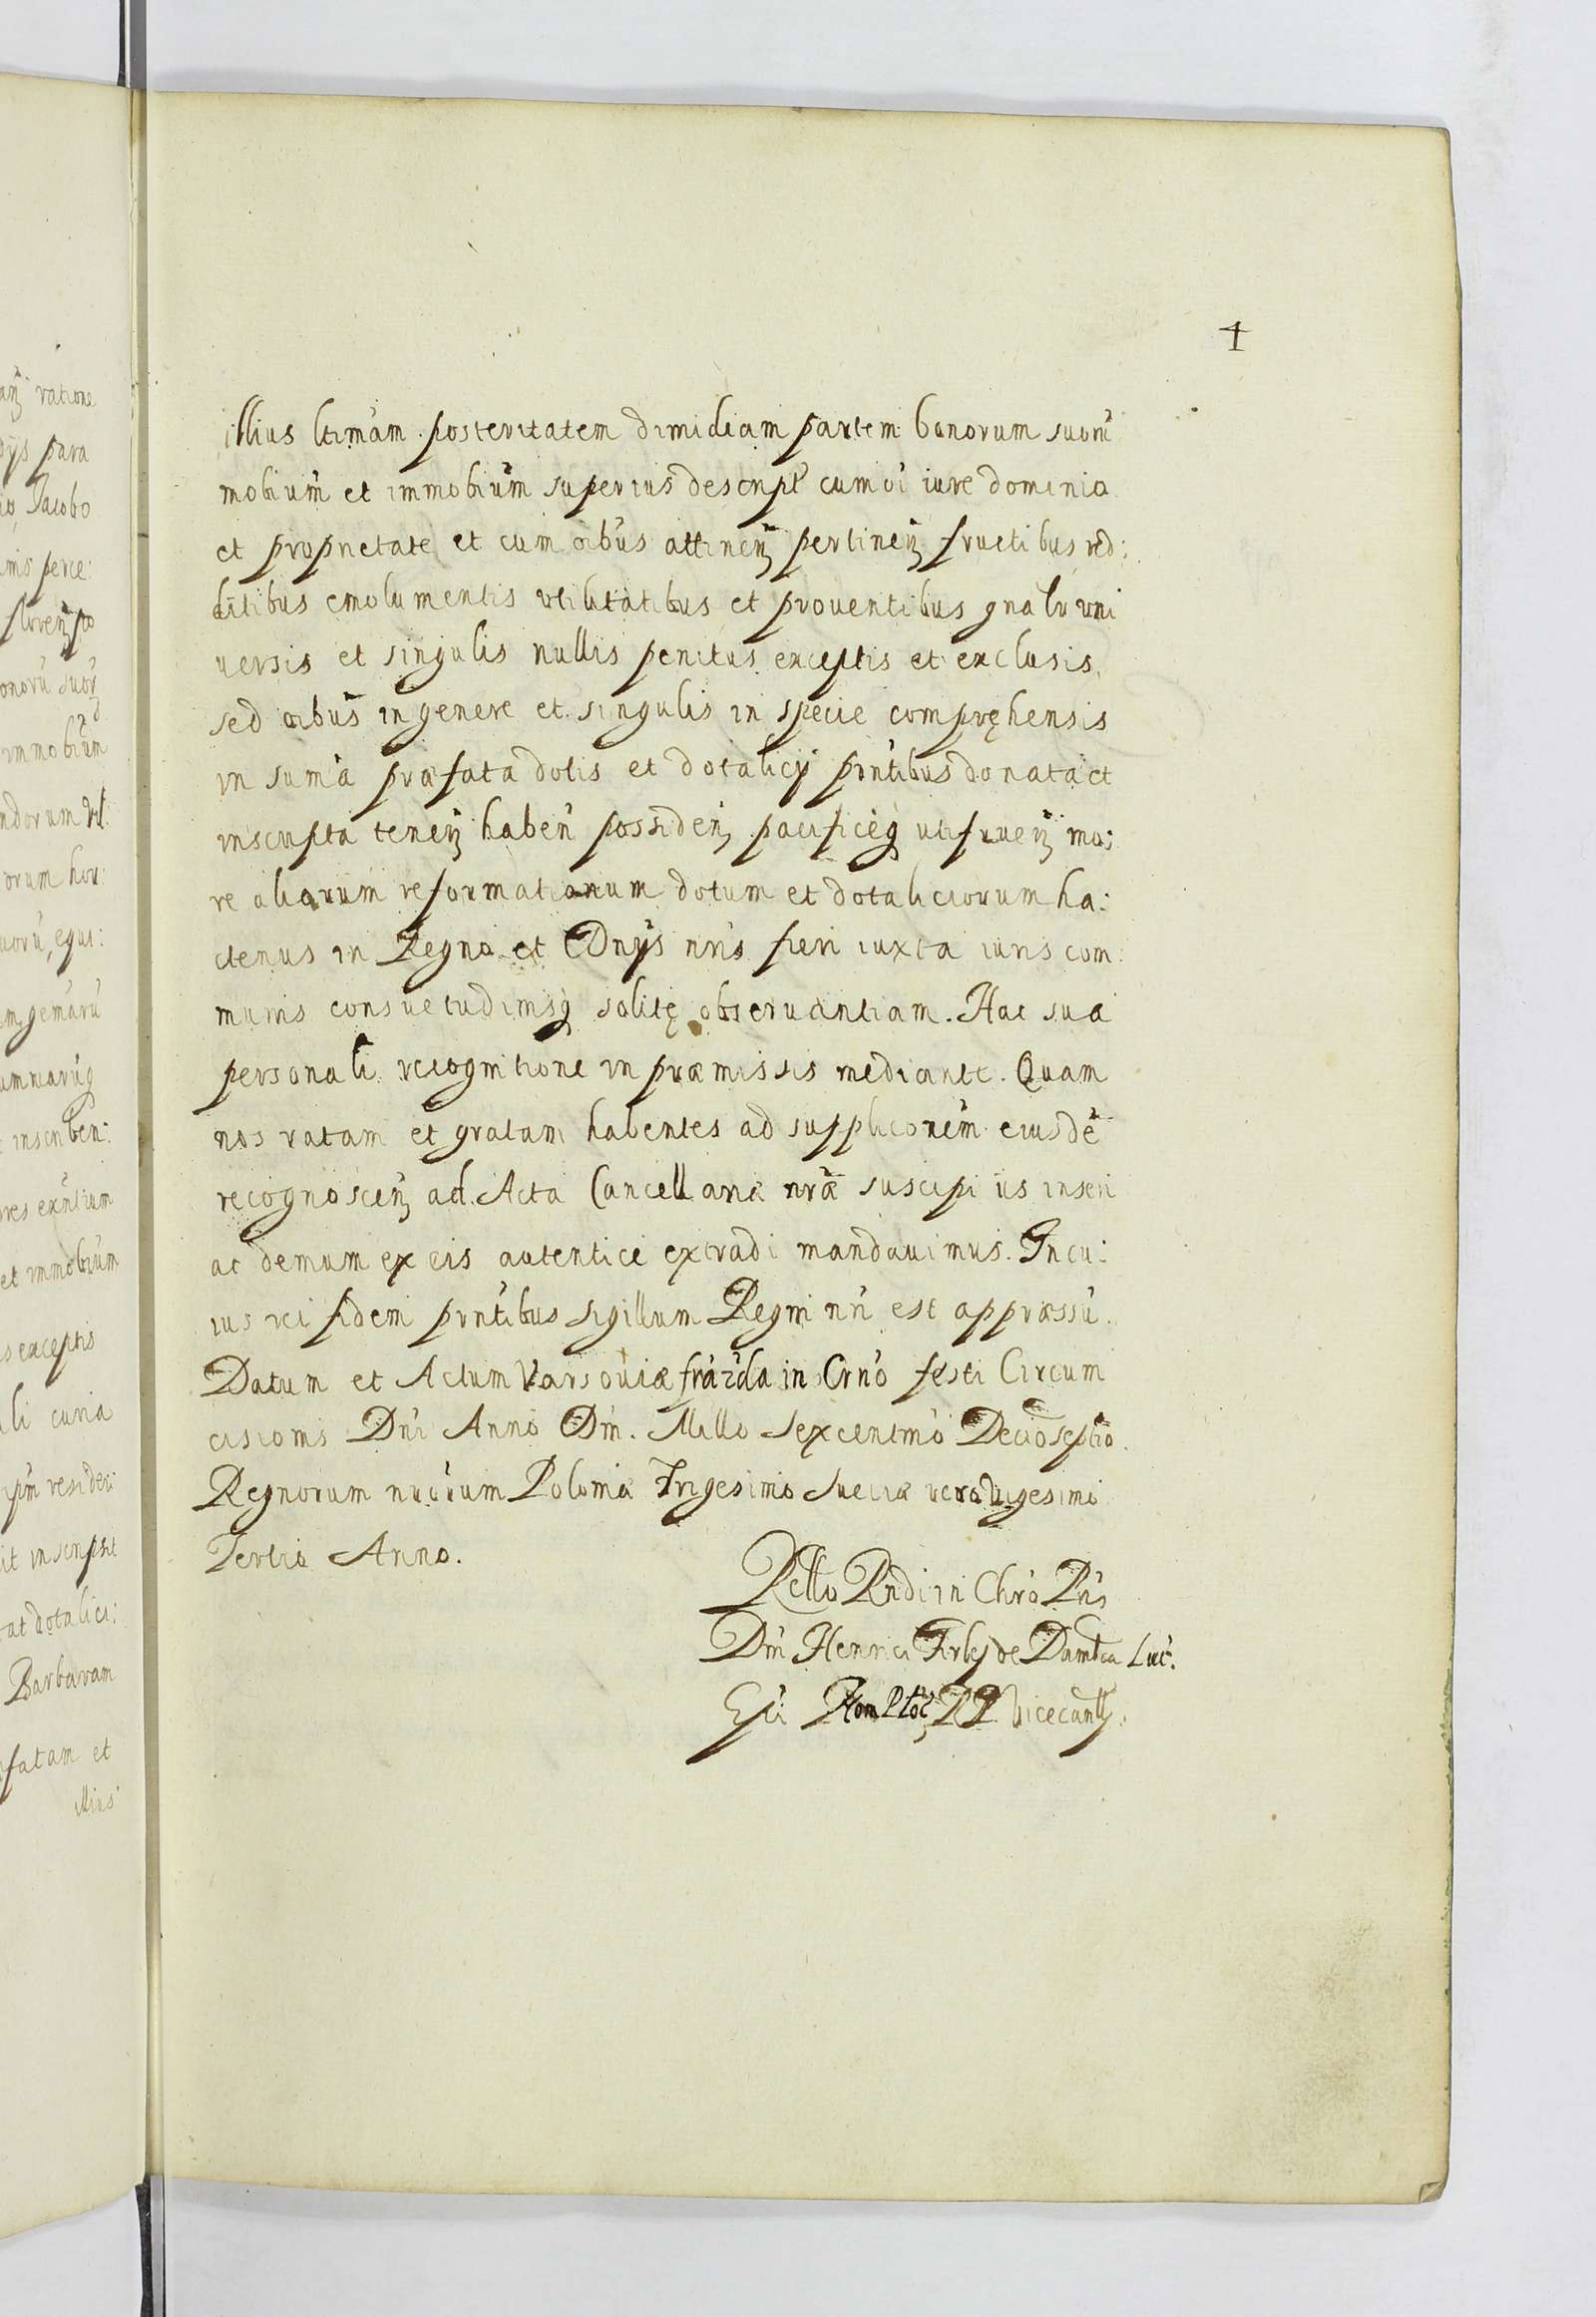 4
illius ltimam posteritatem dimidiam partem bonorum suorũ
mobium̃ et immobium̃ superius descript cum oĩ iure dominio
et proprietate et cum oĩbus attineñ pertineñ fructibus red:
ditibus emolumentis utilitatibus et prouentibus gnalr uni
uersis et singulis nullis penitus exceptis et exclusis,
sed oĩbus in genere et singulis in specie compręhensis
in sum̃a præfata dotis et dotalicij pr̃ntibus donata et
inscripta teneñ habeñ possideñ pacificeq̧ utifrueñ mo:
re aliarum reformationum dotum et dotaliciorum ha:
ctenus in Regno et Dnijs nr̃is fieri iuxta iuris com:
munis consuetudinisq̧ solitę obseruantiam. Hac sua
personali recognitione in præmissis mediante. Quam
nos ratam et gratam habentes ad supplicon̄em eiusdẽ
recognosceñ ad Acta Cancellariæ nr̃æ suscipi iis inseri
ac demum ex eis autentice extradi mandauimus. In cu:
ius rei fidem pr̃ntibus sigillum Regni nr̃i est appræssũ.
Datum et Actum Varsouiæ in Cr̃no festi Circum
cisionis Dñi Anno Dñi. Millo Sexcentmo Decioseptio.
Regnorum nr̃orum Poloniæ Trigesimo Sueciæ vero vigesimo
Tertio Anno.
Rello Rñdi in Chrõ Pr̃is
Dñi Henrici Firlej de Dambrca Luc̃.
Epi Nom 
ratione
dijs para
Jacobo
perce:
onorũ suoŗ
immobium̃
orum hor:
uorũ, equi:
inscriben:
et immobium̃
exceptis
li curia
resideñ
it inscripsit
at dotalici:
Barbaram
fatam et
illius